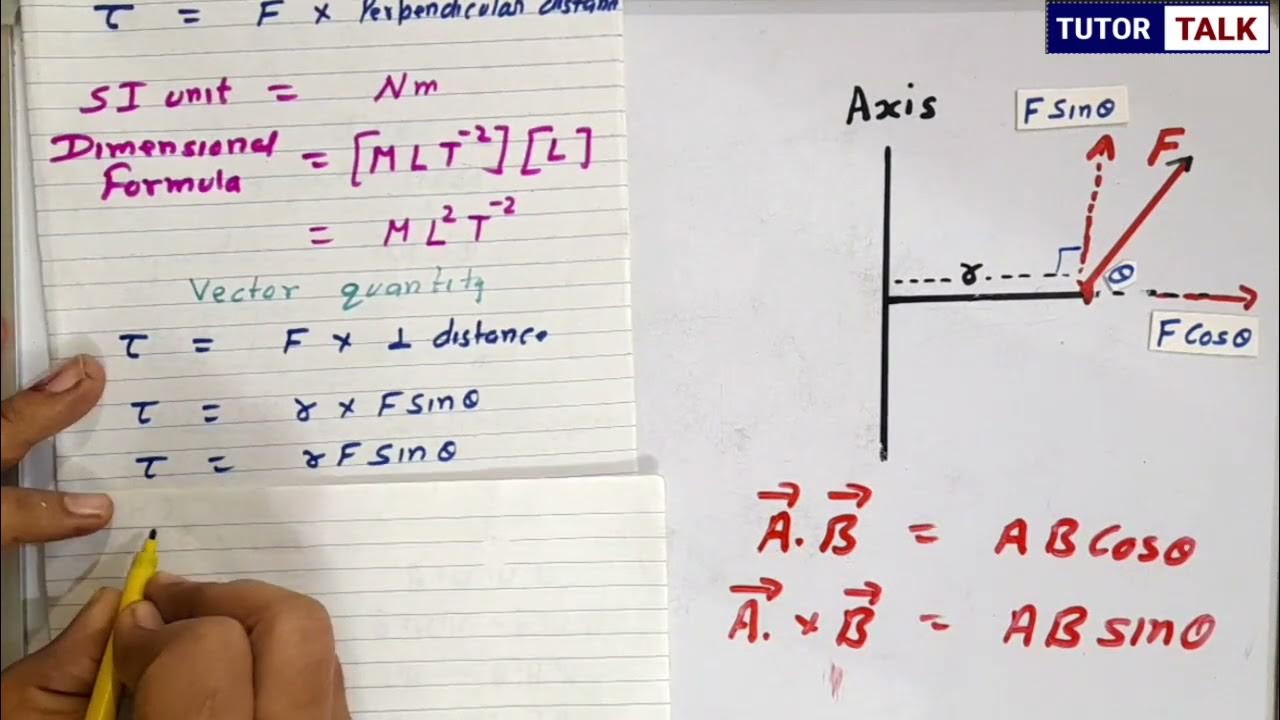 τ = F × Perpendicular distan
SI unit = Nm
Dimensional = [MLT⁻²][L]
Formula
= ML²T⁻²
Vector quantity
τ = F × ⊥ distance
τ = r × F sinθ
τ = r F sinθ
TUTOR TALK
Axis
F Sinθ
F
r
θ
F Cosθ
A⃗. B⃗ = AB Cosθ
A⃗. × B⃗ = AB sinθ